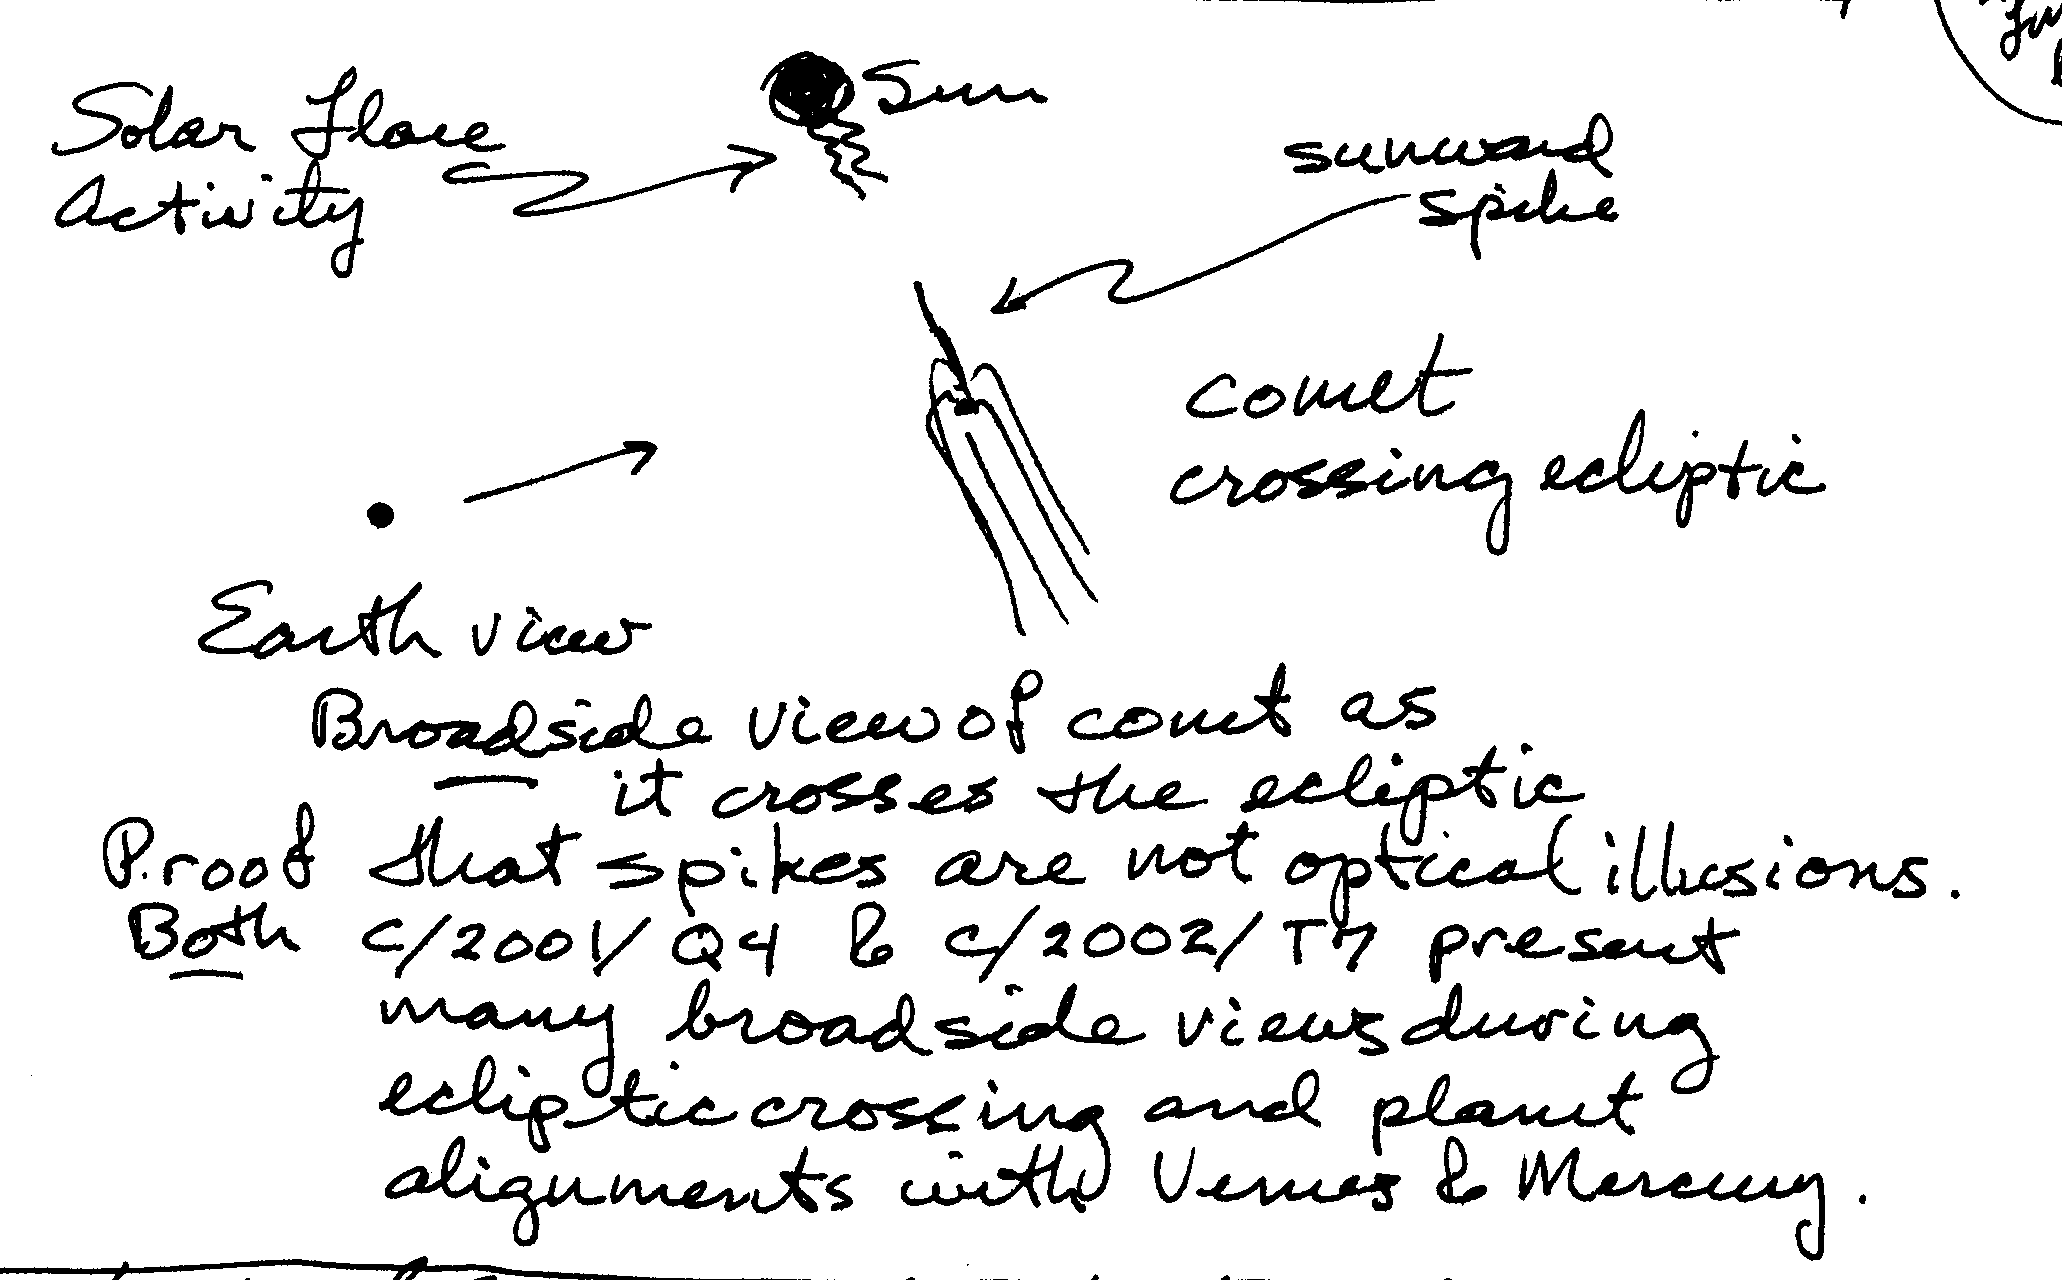 Sun
Solar Flare
Activity
sunward
spike
comet
crossing ecliptic
Earth view
Broadside view of comet as
it crosses the ecliptic
Proof that spikes are not optical illusions.
Both C/2001/Q4 & C/2002/T7 present
many broadside views during
ecliptic crossing and planet
alignments with Venus & Mercury.